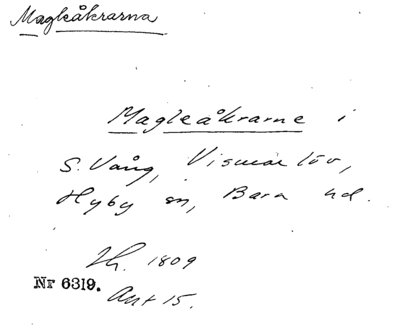 Magleåkrarna
Magleåkrarne i
S. Vång, Vismarlöv,
Hyby sn, Bara hd.
1809
Nr 6319.
Akt 15.